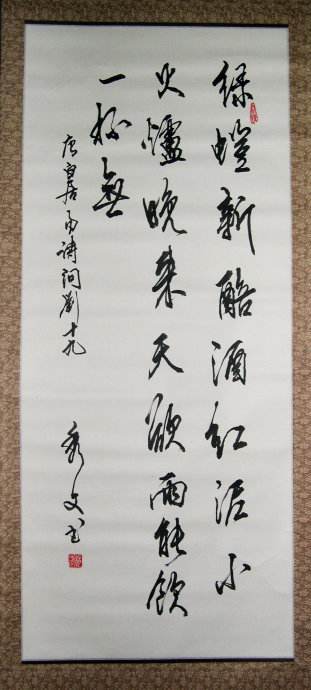 绿螘新醅酒红泥小
火爐晚来天欲雨能饮
一杯無
唐白居易诗问刘十九
秀文书